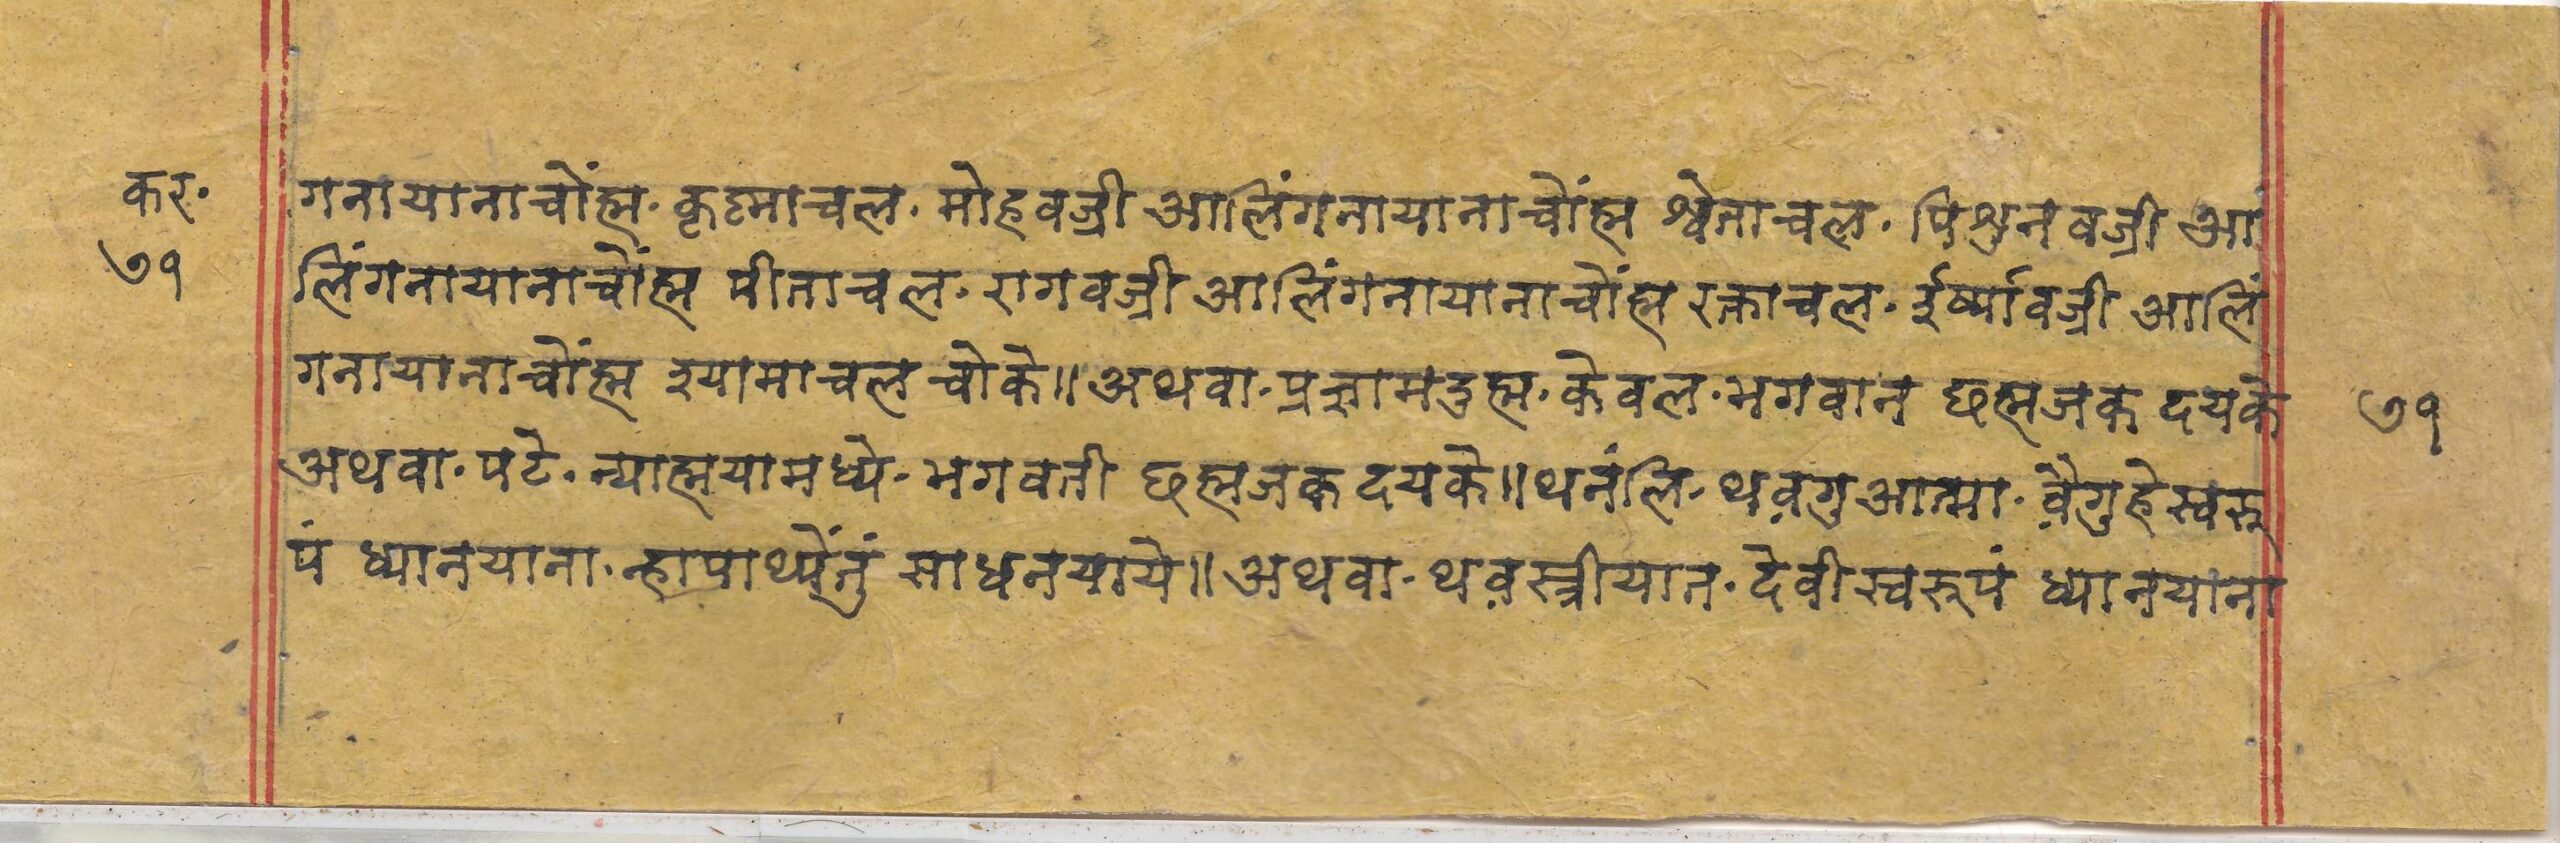 कर॰
७१
गनायानाचोंह्म॰ कृष्माचल॰ मोहवज्री आलिंगनायानाचोंह्म श्वेताचल॰ पिशुनवज्री आ
लिंगनायानाचोंह्म पीताचल॰ रागवज्री आलिंगनायानाचोंह्म रक्ताचल॰ ईर्ष्यावज्री आलिं
गनायानाचोंह्म श्यामाचल चोके॥ अथवा॰ प्रज्ञामदुह्म॰ केवल॰ भगवान छह्मजक दयके
७१
अथवा॰ पटे॰ न्याह्मयामध्ये॰ भगवती छह्मजक दयके॥ थनंलि॰ थव़गुआत्मा॰ व़ैगुहेस्वरू
पं ध्यानयाना॰ न्हापाथ्येंतुं साधनयाये॥ अथवा॰ थव़स्त्रीयात॰ देवीस्वरूपं ध्यानयाना